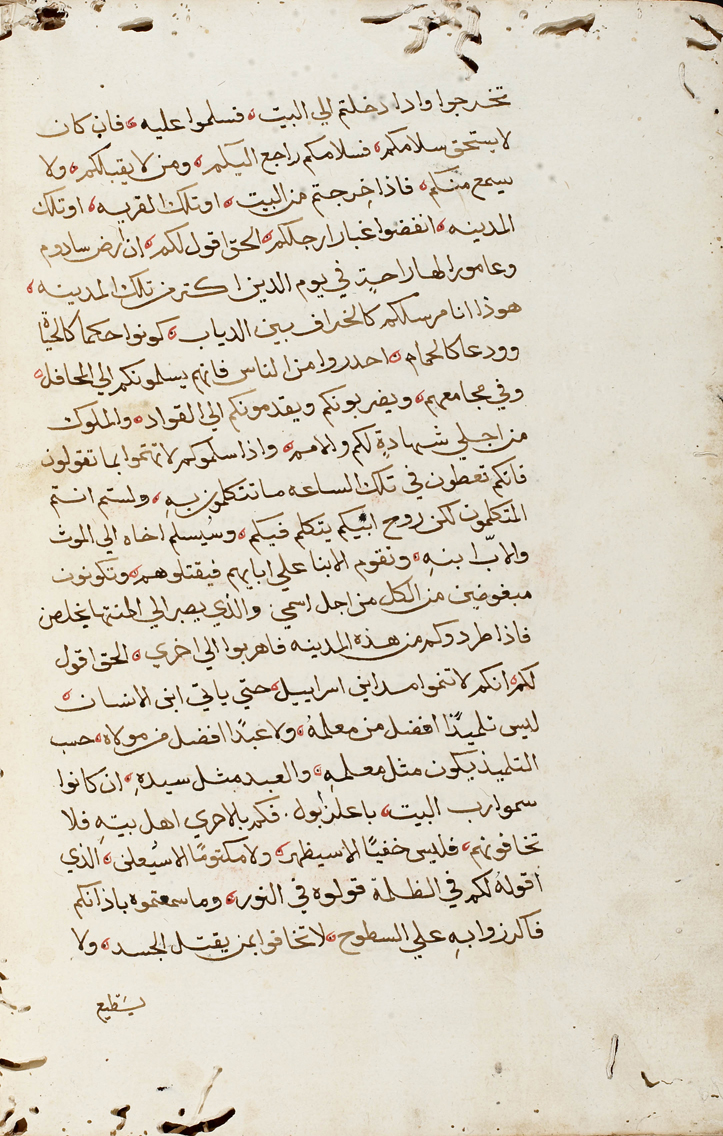 تخرجوا وادا دخلتم الي البيت فسلموا عليه فان كان
لا يستحق سلامكم فسلامكم راجع اليكم ومن لا يقبلكم ولا
سمع منكم فاذا خرجتم من البيت او تلك القريه او تلك
المدينه انفضوا غبار ارجلكم الحق اقول لكم ان ارض سادوم
وعامورا لها راحة في يوم الدين اكتر من تلك المدينه
هوذا انا مرسلكم كالخراف بين الدياب كونوا حكما كالحياة
وودعا كالحمام احدروا من الناس فانهم يسلمونكم الي المحافل
وفي مجامعهم ويضربونكم ويقدمونكم الي القواد والملوك
من اجلي شهادة لكم والامم واذا سلموكم لا تهتموا بما تقولون
فانكم تعطون في تلك الساعه ما تتكلمون به ولستم انتم
المتكلمون لكن روح ابيكم يتكلم فيكم وسيسلم اخاه الي الموت
والاب ابنه وتقوم الابنا علي ابايهم فيقتلوهم وتكونون
مبغوضين من الكل من اجل اسمي والذي يصبر الي المنتها يخلص
فاذا طردوكم من هذه المدينه فاهربوا الي اخري الحق اقول
لكم انكم لا تتموا مداين اسراييل حتي ياتي ابن الانسان
ليس تلميذًا افضل من معلمه ولا عبدًا افضل من مولاه حسب
التلميذ يكون مثل معلمه والعبد مثل سيده ان كانوا
سموا رب البيت باعلزابول فكم بالاحري اهل بيته فلا
تخافونهم فليس خفيًا الا سيظهر ولا مكتومًا الا سيعلن الذي
اقوله لكم في الظلمة قولوه في النور وما سمعتموه باذانكم
فاكرزوا به علي السطوح لا تخافوا بمن يقتل الجسد ولا
يستطيع